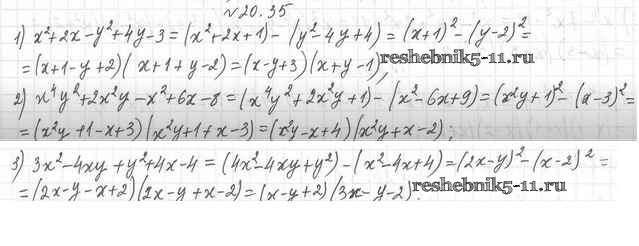 №20.35
1) x²+2x-y²+4y-3=(x²+2x+1)-(y²-4y+4)=(x+1)²-(y-2)²=
=(x+1-y+2)(x+1+y-2)=(x-y+3)(x+y-1);
reshebnik5-11.ru
2) x⁴y²+2x²y-x²+6x-8=(x⁴y²+2x²y+1)-(x²-6x+9)=(x²y+1)²-(a-3)²=
=(x²y+1-x+3)(x²y+1+x-3)=(x²y-x+4)(x²y+x-2);
3) 3x²-4xy+y²+4x-4=(4x²-4xy+y²)-(x²-4x+4)=(2x-y)²-(x-2)²=
=(2x-y-x+2)(2x-y+x-2)=(x-y+2)(3x-y-2).
reshebnik5-11.ru